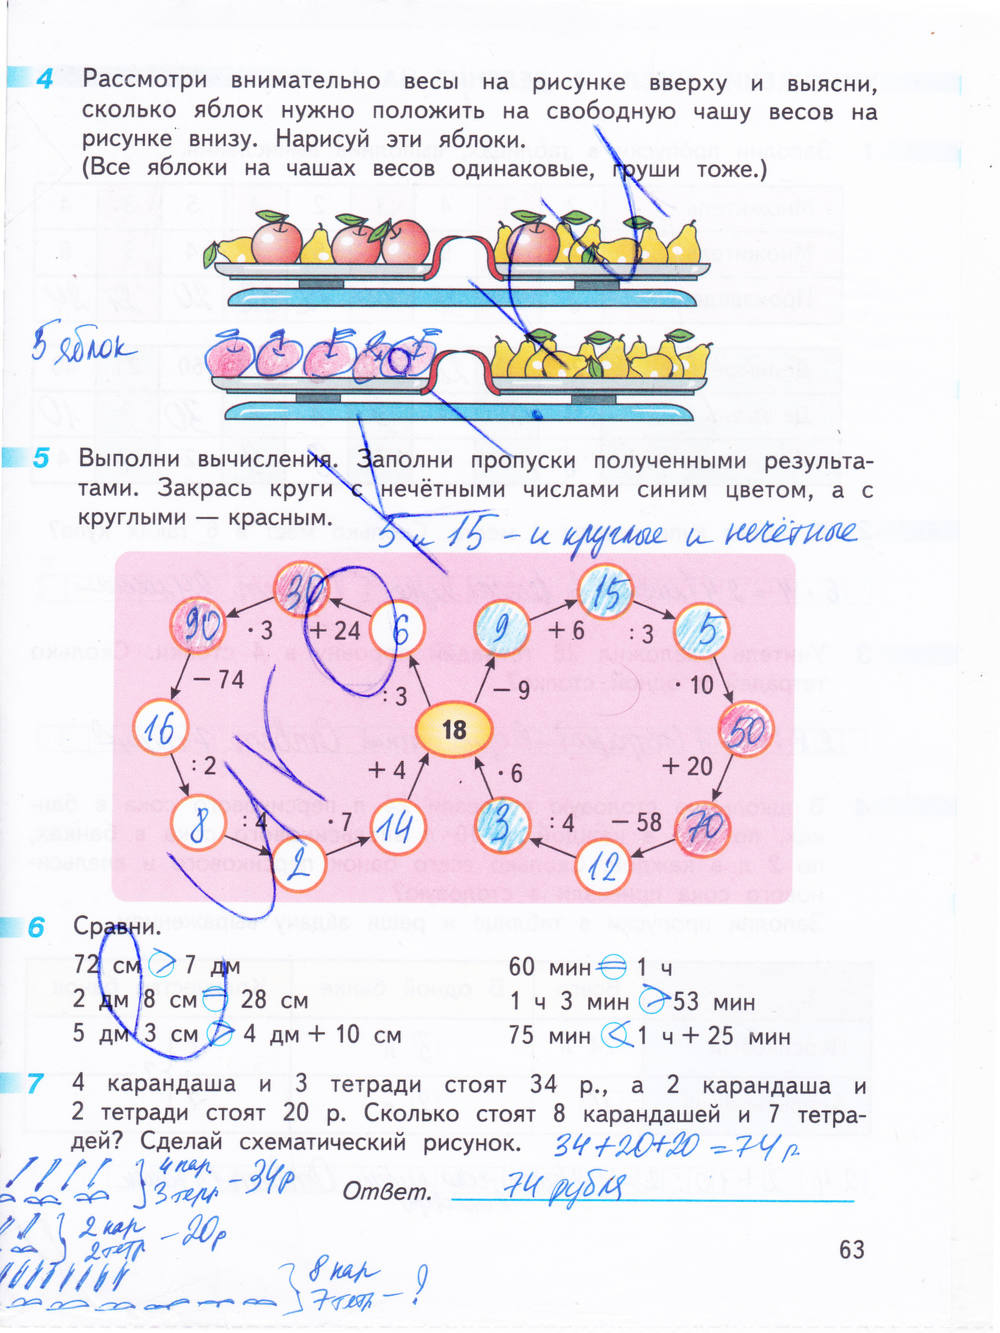 4 Рассмотри внимательно весы на рисунке вверху и выясни,
сколько яблок нужно положить на свободную чашу весов на
рисунке внизу. Нарисуй эти яблоки.
(Все яблоки на чашах весов одинаковые, груши тоже.)
5 яблок
5 Выполни вычисления. Заполни пропуски полученными результа-
тами. Закрась круги с нечётными числами синим цветом, а с
круглыми — красным.
5 и 15 - и круглые и нечётные
30 15
90 · 3 + 24 6 9 + 6 : 3 5
− 74 : 3 − 9 · 10
16 18 50
: 2 + 4 · 6 + 20
8 : 4 · 7 14 3 : 4 − 58 70
2 12
6 Сравни.
72 см > 7 дм 60 мин = 1 ч
2 дм 8 см = 28 см 1 ч 3 мин > 53 мин
5 дм 3 см > 4 дм + 10 см 75 мин < 1 ч + 25 мин
7 4 карандаша и 3 тетради стоят 34 р., а 2 карандаша и
2 тетради стоят 20 р. Сколько стоят 8 карандашей и 7 тетра-
дей? Сделай схематический рисунок. 34+20+20=74 р
4 кар
3 тетр - 34р
Ответ. 74 рубля
2 кар
2 тетр - 20р
63
8 кар
7 тетр - ?